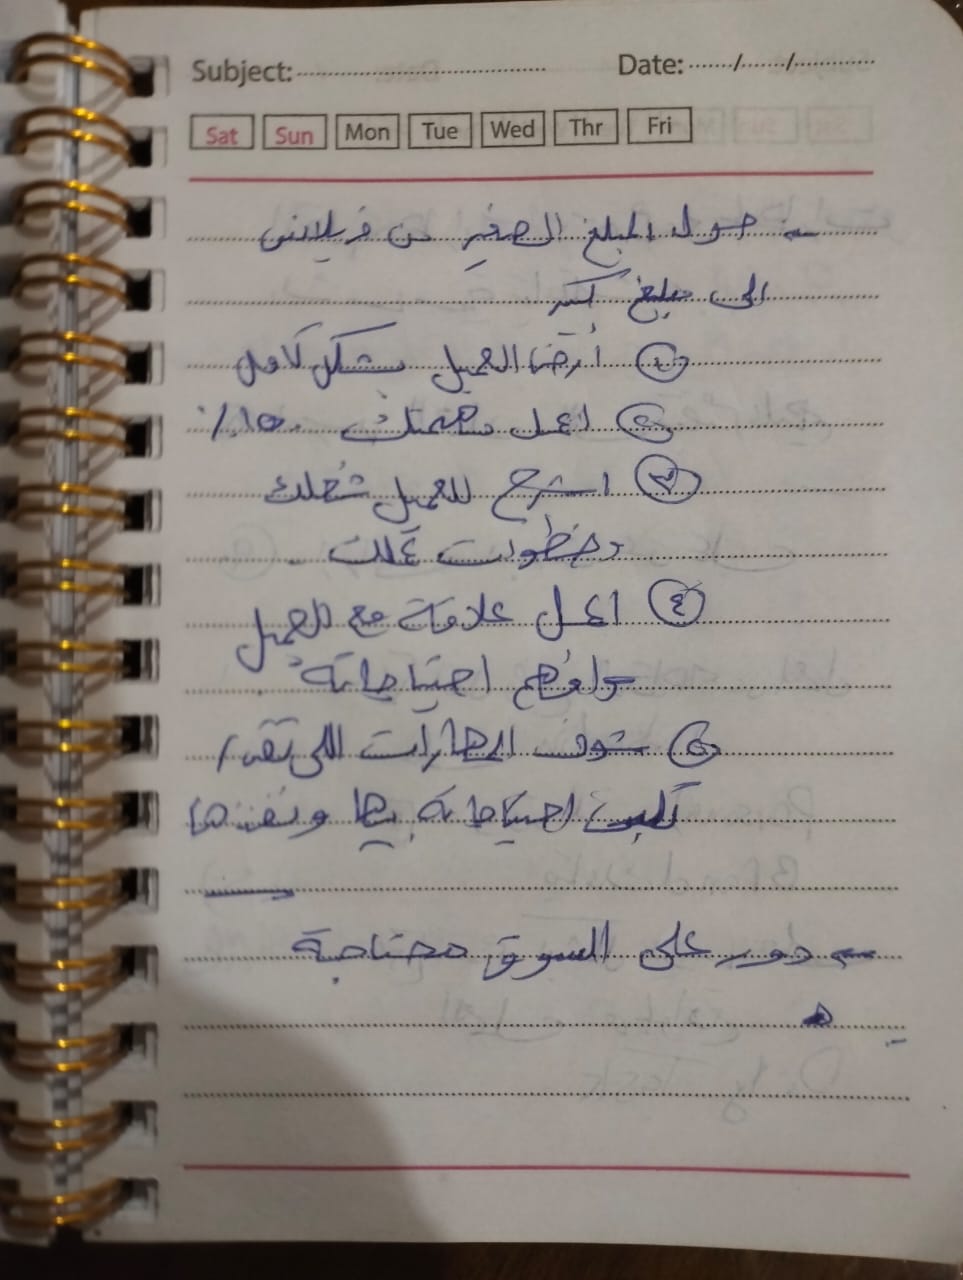 Subject: Date: / /
Sat Sun Mon Tue Wed Thr Fri
حول المبلغ الصغير من فريلانس
الى مبلغ كبير
① أرضا العميل بشكل كامل
② اعمل مهمتك ١٥٠٪
③ اشرح للعميل شغلك
وخطوات عملك
④ اعمل علاقة مع العميل
وافهم احتياجاته
⑤ شوف المهارات اللي تقد/
تلبي احتياجاته بها ونفذها
دور على السوق محتاجة